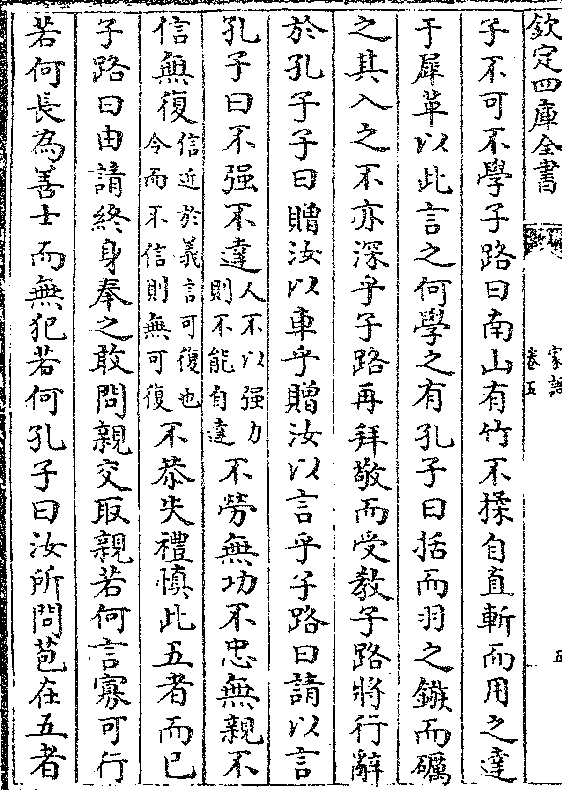 欽定四庫全書
家語
卷五
五
子不可不學子路曰南山有竹不揉自直斬而用之達
于犀革以此言之何學之有孔子曰括而羽之鏃而礪
之其入之不亦深乎子路再拜敬而受教子路將行辭
於孔子子曰贈汝以車乎贈汝以言乎子路曰請以言
孔子曰不强不達人不以强力則不能自達不勞無功不忠無親不
信無復信近於義言可復也今而不信則無可復不恭失禮慎此五者而已
子路曰由請終身奉之敢問親交取親若何言寡可行
若何長為善士而無犯若何孔子曰汝所問苞在五者